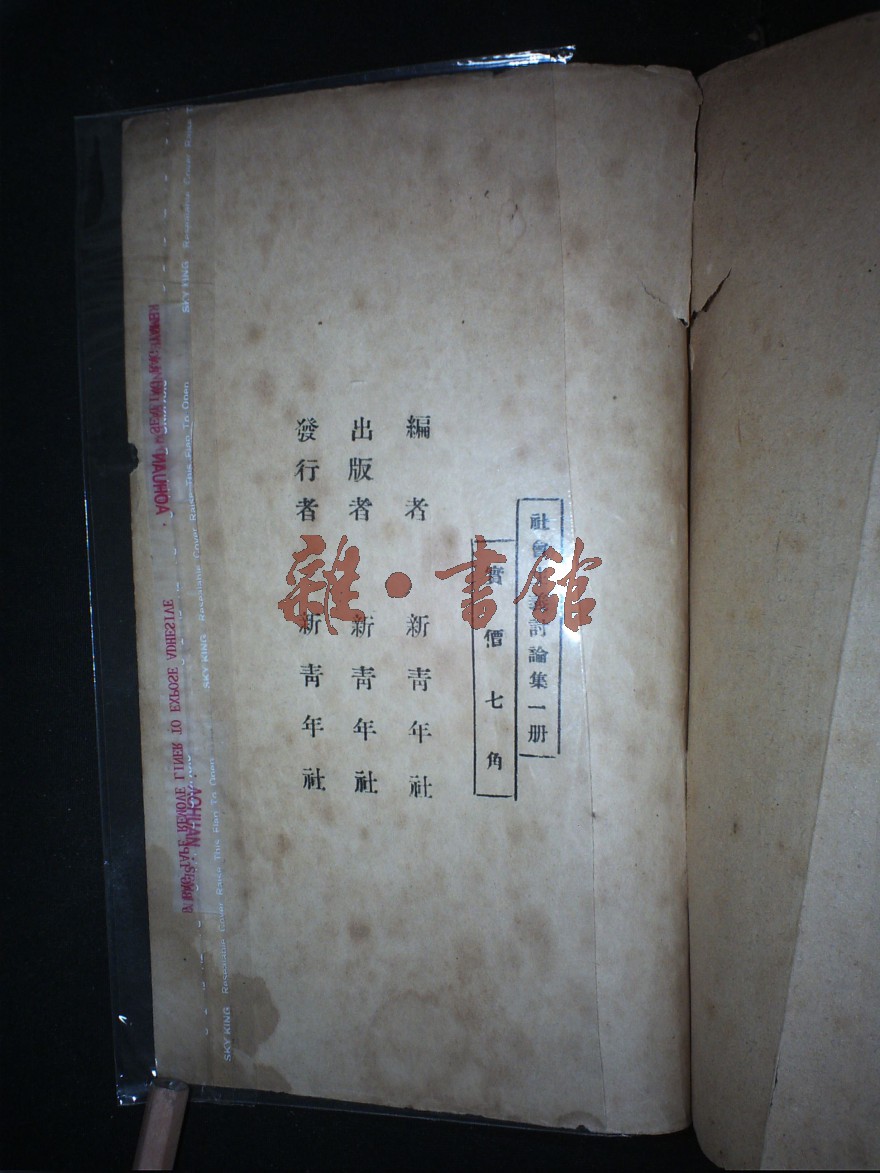 社會主義討論集一册
實價七角
編者 新靑年社
出版者 新靑年社
發行者 新靑年社
雜·書館
SKY KING Resealable Cover Raise This Flap To Open
REMOVE LINER TO EXPOSE ADHESIVE